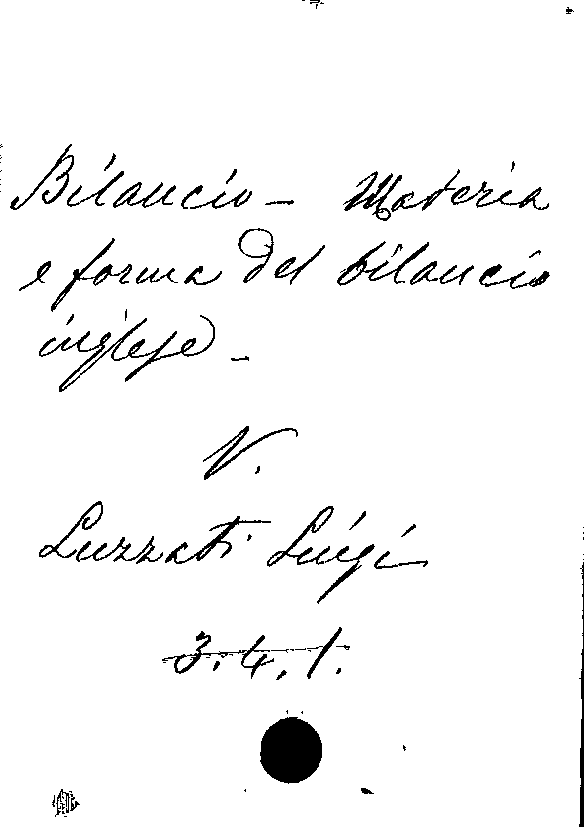 Bilancio - Materia
e forma del bilancio
inglese -
V.
Luzzati Luigi
3.4.1.